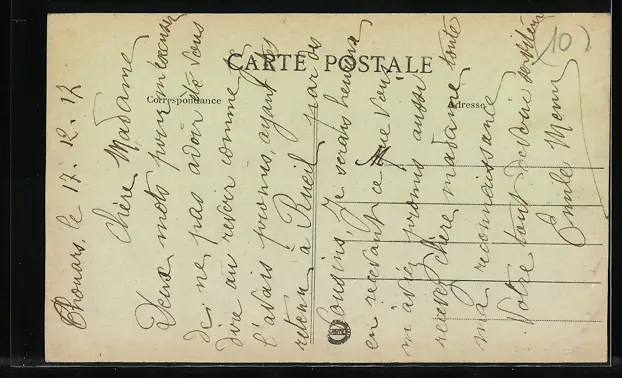 CARTE POSTALE
Correspondance
Adresse
10
Thouars, le 17.12.17
Chère Madame
Deux mots pour m'excuser
de ne pas avoir été vous
dire au revoir comme
l'avais promis ayant été
retenu à Rueil par des
Cousins, Je serais heureux
en recevant ce que vous
m'aviez promis aussi
recevez chère madame toute
ma reconnaissance
Votre tout dévoué serviteur
Emile